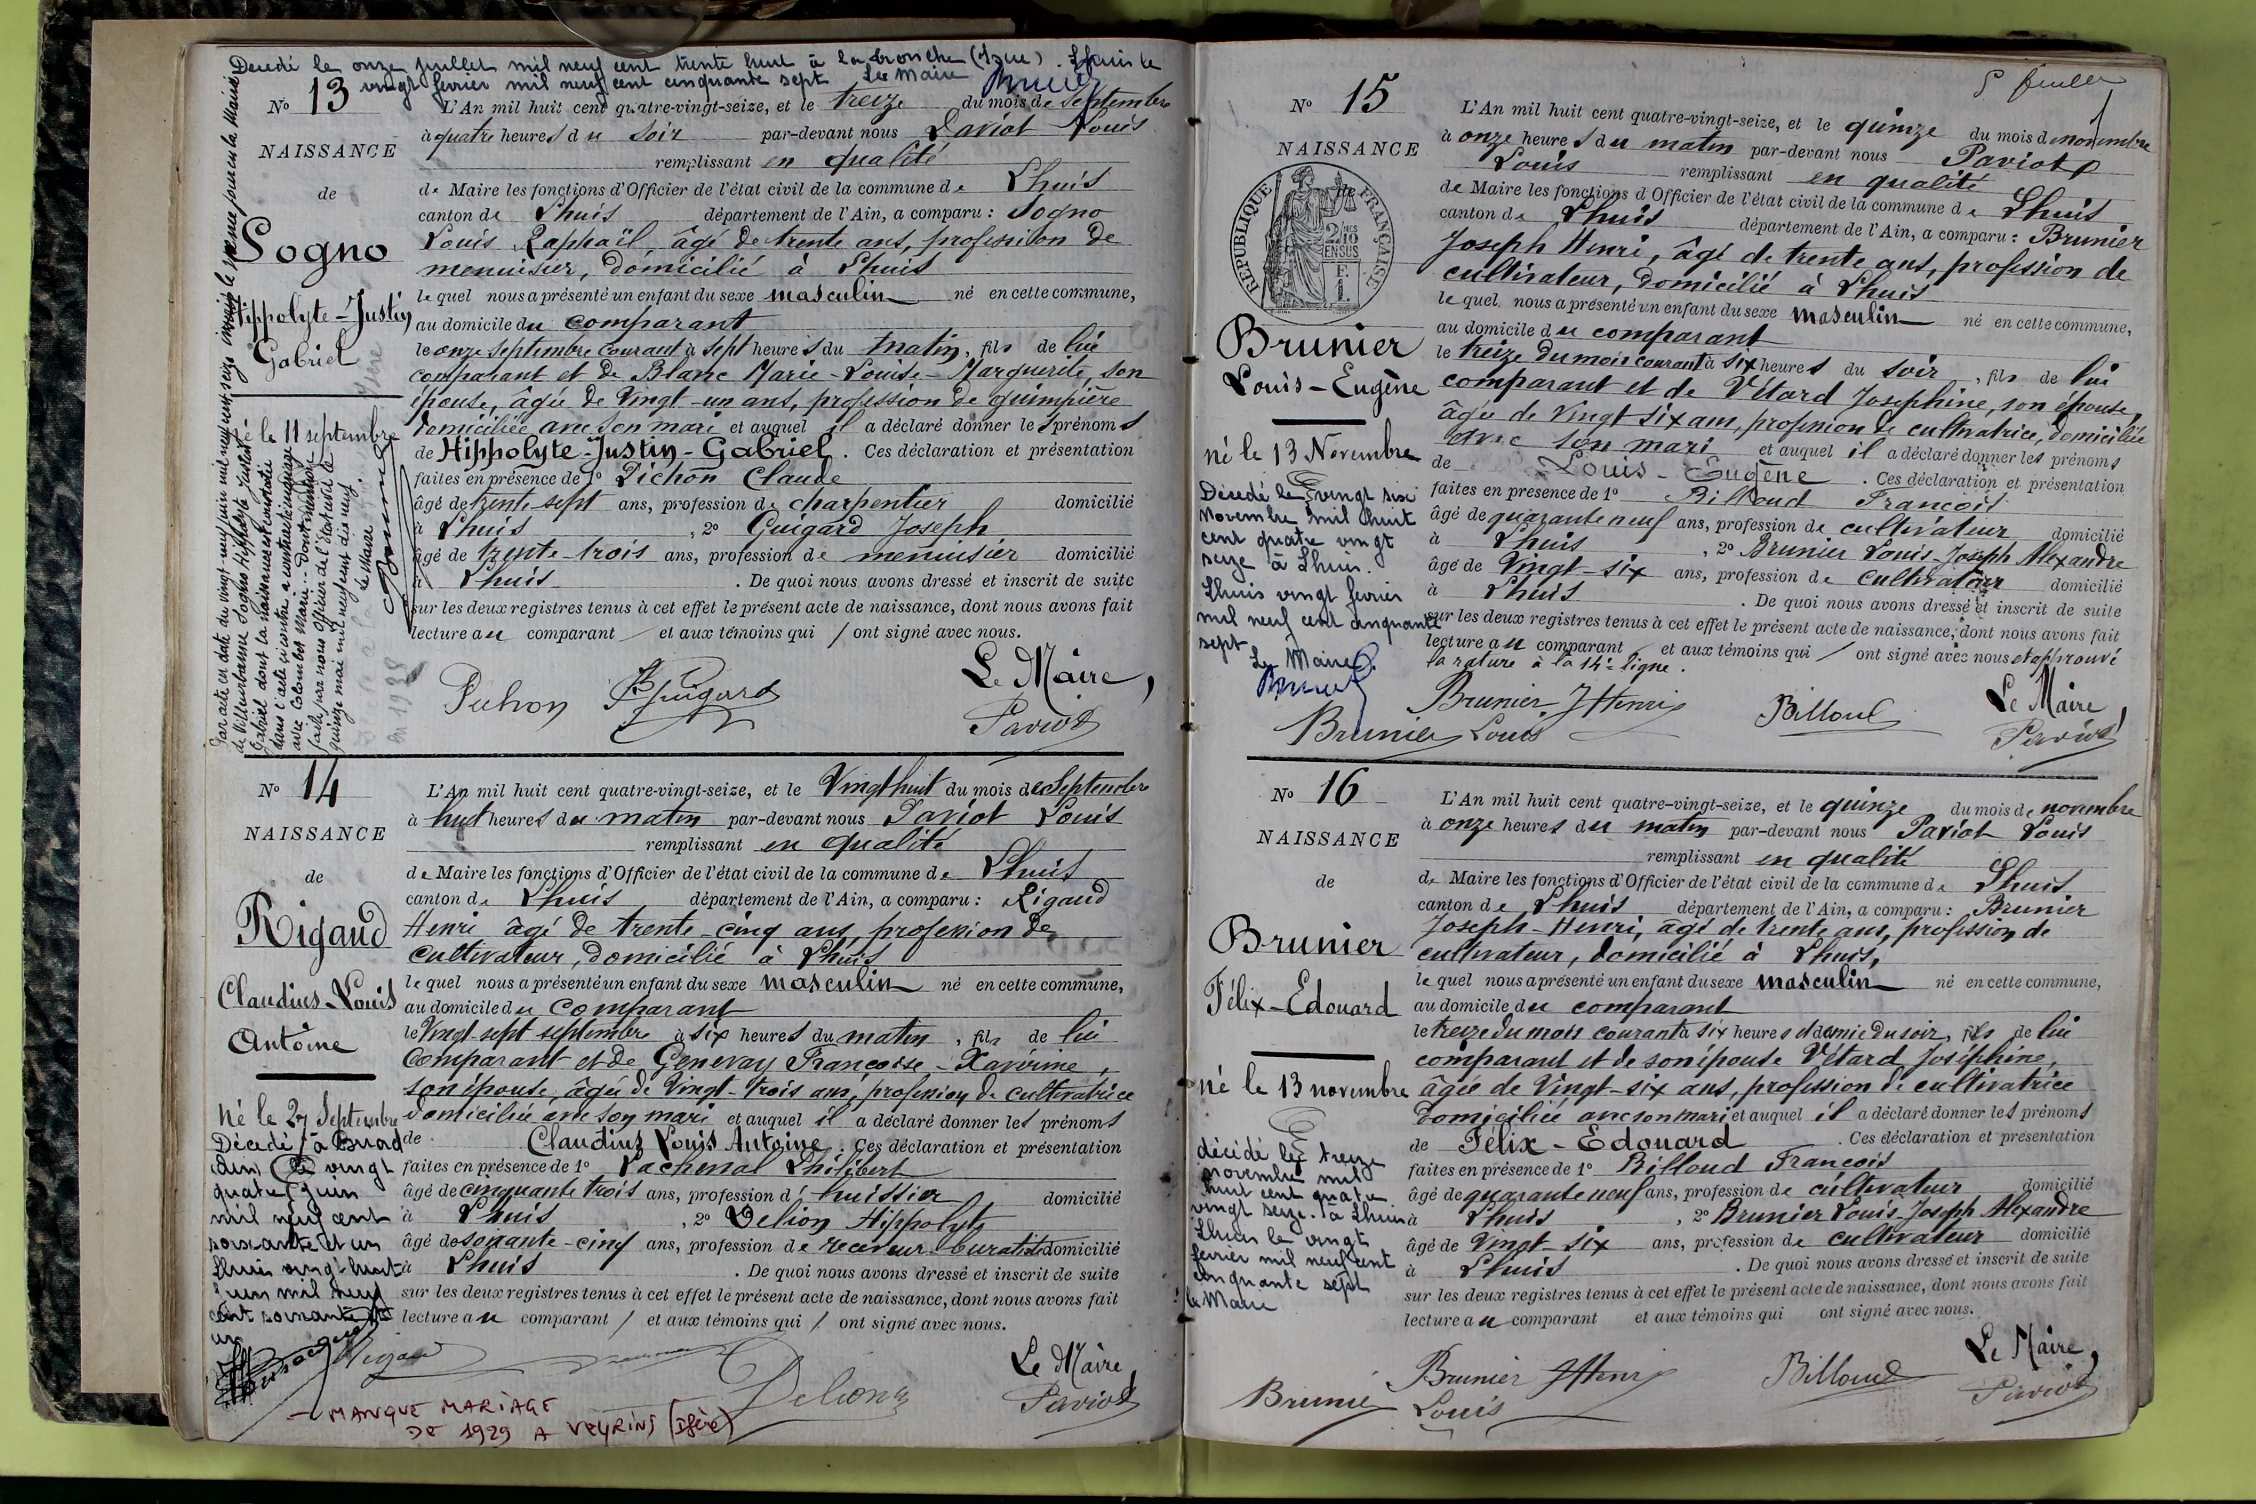 Decedé le onze juillet mil neuf cent trente huit à la Tronche (Isère). Lhuis le
vingt fevrier mil neuf cent cinquante sept Le Maire
N° 13
NAISSANCE
de
Sogno
Hippolyte-Justin
Gabriel
né le 11 septembre
Par acte en date du vingt neuf juin mil neuf cent seize
de Villeurbanne Sogno Hippolyte Justin
Gabriel dont la naissance est constatée
dans l'acte ci contre a contracté mariage
avec Colombet Marie. Dont mention
faite par nous Officier de l'état civil le
quinze mai mil neuf cent dix neuf.
Le Maire
L'An mil huit cent quatre-vingt-seize, et le treize du mois de septembre
à quatre heures du soir par-devant nous Paviot Louis
remplissant en qualité
de Maire les fonctions d'Officier de l'état civil de la commune de Lhuis
canton de Lhuis département de l'Ain, a comparu : Sogno
Louis Raphaël, âgé de trente ans, profession de
menuisier, domicilié à Lhuis
lequel nous a présenté un enfant du sexe masculin né en cette commune,
au domicile du comparant
le onze septembre courant à sept heures du matin, fils de lui
comparant et de Blanc Marie-Louise-Marguerite, son
épouse, âgée de vingt-un ans, profession de guimpière
domiciliée avec son mari et auquel il a déclaré donner les prénoms
de Hippolyte-Justin-Gabriel. Ces déclaration et présentation
faites en présence de 1° Pichon Claude
âgé de trente-sept ans, profession de charpentier domicilié
à Lhuis, 2° Guigard Joseph
âgé de trente-trois ans, profession de menuisier domicilié
à Lhuis. De quoi nous avons dressé et inscrit de suite
sur les deux registres tenus à cet effet le présent acte de naissance, dont nous avons fait
lecture au comparant et aux témoins qui ont signé avec nous.
Pichon Guigard
Le Maire,
Paviot
N° 14
NAISSANCE
de
Rigaud
Claudius-Louis
Antoine
né le 27 Septembre
Décédé à Briord
(Ain) le vingt
quatre juin
mil neuf cent
soixante et un
Lhuis vingt-huit
juin mil neuf
cent soixante et
un
L'An mil huit cent quatre-vingt-seize, et le Vingt huit du mois de Septembre
à huit heures du matin par-devant nous Paviot Louis
remplissant en qualité
de Maire les fonctions d'Officier de l'état civil de la commune de Lhuis
canton de Lhuis département de l'Ain, a comparu : Rigaud
Henri âgé de trente-cinq ans, profession de
cultivateur, domicilié à Lhuis
lequel nous a présenté un enfant du sexe masculin né en cette commune,
au domicile du comparant
le Vingt-sept septembre à six heures du matin, fils de lui
comparant et de Genevay Françoise-Xavérine,
son épouse, âgée de vingt-trois ans, profession de cultivatrice
domiciliée avec son mari et auquel il a déclaré donner les prénoms
de Claudius Louis Antoine. Ces déclaration et présentation
faites en présence de 1° Vachenal Philibert
âgé de cinquante trois ans, profession d'huissier domicilié
à Lhuis, 2° Delion Hippolyte
âgé de soixante-cinq ans, profession de receveur-buraliste domicilié
à Lhuis. De quoi nous avons dressé et inscrit de suite
sur les deux registres tenus à cet effet le présent acte de naissance, dont nous avons fait
lecture au comparant et aux témoins qui ont signé avec nous.
Rigaud
Delion
Le Maire,
Paviot
- MANQUE MARIAGE
DE 1929 A VEYRINS (Isère)
5 feuille
N° 15
NAISSANCE
RÉPUBLIQUE FRANÇAISE
2 10
EN SUS
Brunier
Louis-Eugène
né le 13 Novembre
Décedé le vingt six
novembre mil huit
cent quatre vingt
seize à Lhuis.
Lhuis vingt fevrier
mil neuf cent cinquante
sept
Le Maire
L'An mil huit cent quatre-vingt-seize, et le quinze du mois de novembre
à onze heures du matin par-devant nous Paviot
Louis remplissant en qualité
de Maire les fonctions d'Officier de l'état civil de la commune de Lhuis
canton de Lhuis département de l'Ain, a comparu : Brunier
Joseph Henri, âgé de trente ans, profession de
cultivateur, domicilié à Lhuis
lequel nous a présenté un enfant du sexe masculin né en cette commune,
au domicile du comparant
le treize du mois courant à six heures du soir, fils de lui
comparant et de Vétard Joséphine, son épouse,
âgée de vingt-six ans, profession de cultivatrice, domiciliée
avec son mari et auquel il a déclaré donner les prénoms
de Louis-Eugène. Ces déclaration et présentation
faites en présence de 1° Billoud François
âgé de quarante neuf ans, profession de cultivateur domicilié
à Lhuis, 2° Brunier Louis-Joseph Alexandre
âgé de Vingt-six ans, profession de cultivateur domicilié
à Lhuis. De quoi nous avons dressé et inscrit de suite
sur les deux registres tenus à cet effet le présent acte de naissance, dont nous avons fait
lecture au comparant et aux témoins qui ont signé avec nous et approuvé
la rature à la 14e ligne.
Brunier JHenri Billoud
Brunier Louis
Le Maire,
Paviot
N° 16
NAISSANCE
de
Brunier
Félix-Edouard
né le 13 novembre
décidé le treize
novembre mil
huit cent quatre
vingt seize. à Lhuis
Lhuis le vingt
fevrier mil neuf cent
cinquante sept
Le Maire
L'An mil huit cent quatre-vingt-seize, et le quinze du mois de novembre
à onze heures du matin par-devant nous Paviot Louis
remplissant en qualité
de Maire les fonctions d'Officier de l'état civil de la commune de Lhuis
canton de Lhuis département de l'Ain, a comparu : Brunier
Joseph-Henri, âgé de trente ans, profession de
cultivateur, domicilié à Lhuis,
lequel nous a présenté un enfant du sexe masculin né en cette commune,
au domicile du comparant
le treize du mois courant à six heures et demie du soir, fils de lui
comparant et de son épouse Vétard Joséphine,
âgée de Vingt-six ans, profession de cultivatrice
domiciliée avec son mari et auquel il a déclaré donner les prénoms
de Félix-Edouard. Ces déclaration et présentation
faites en présence de 1° Billoud François
âgé de quarante neuf ans, profession de cultivateur domicilié
à Lhuis, 2° Brunier Louis-Joseph Alexandre
âgé de Vingt-six ans, profession de cultivateur domicilié
à Lhuis. De quoi nous avons dressé et inscrit de suite
sur les deux registres tenus à cet effet le présent acte de naissance, dont nous avons fait
lecture au comparant et aux témoins qui ont signé avec nous.
Brunier JHenri Billoud
Brunier Louis
Le Maire,
Paviot